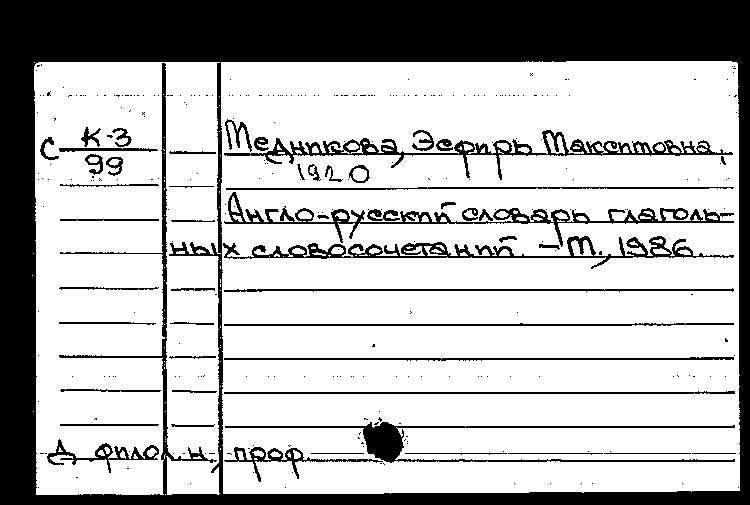 С К-3
99
Медникова, Эсфирь Максимовна,
1920
Англо-русский словарь глаголь-
ных словосочетаний. – М., 1986.
Д. филол. н., проф.